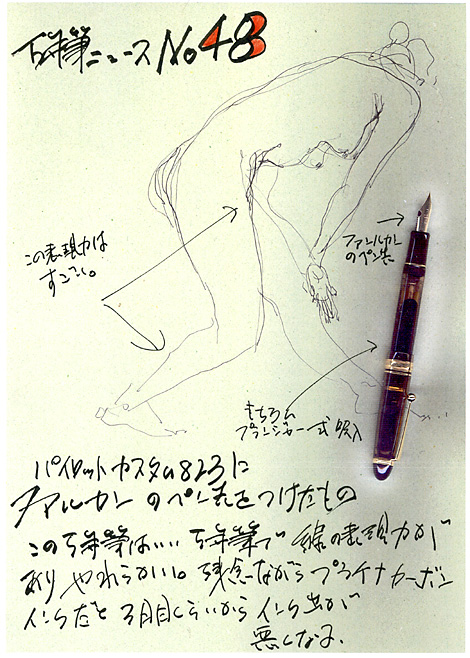 万年筆ニュースNo48
この表現力は
すごい。
ファルカン
のペン先
もちろん
プランジャー式吸入
パイロットカスタム823に
ファルカンのペン先をつけたもの
この万年筆はいい万年筆で線の表現力が
ありやわらかい。残念ながらプラチナカーボン
インクだと3月目くらいからインク出が
悪くなる.